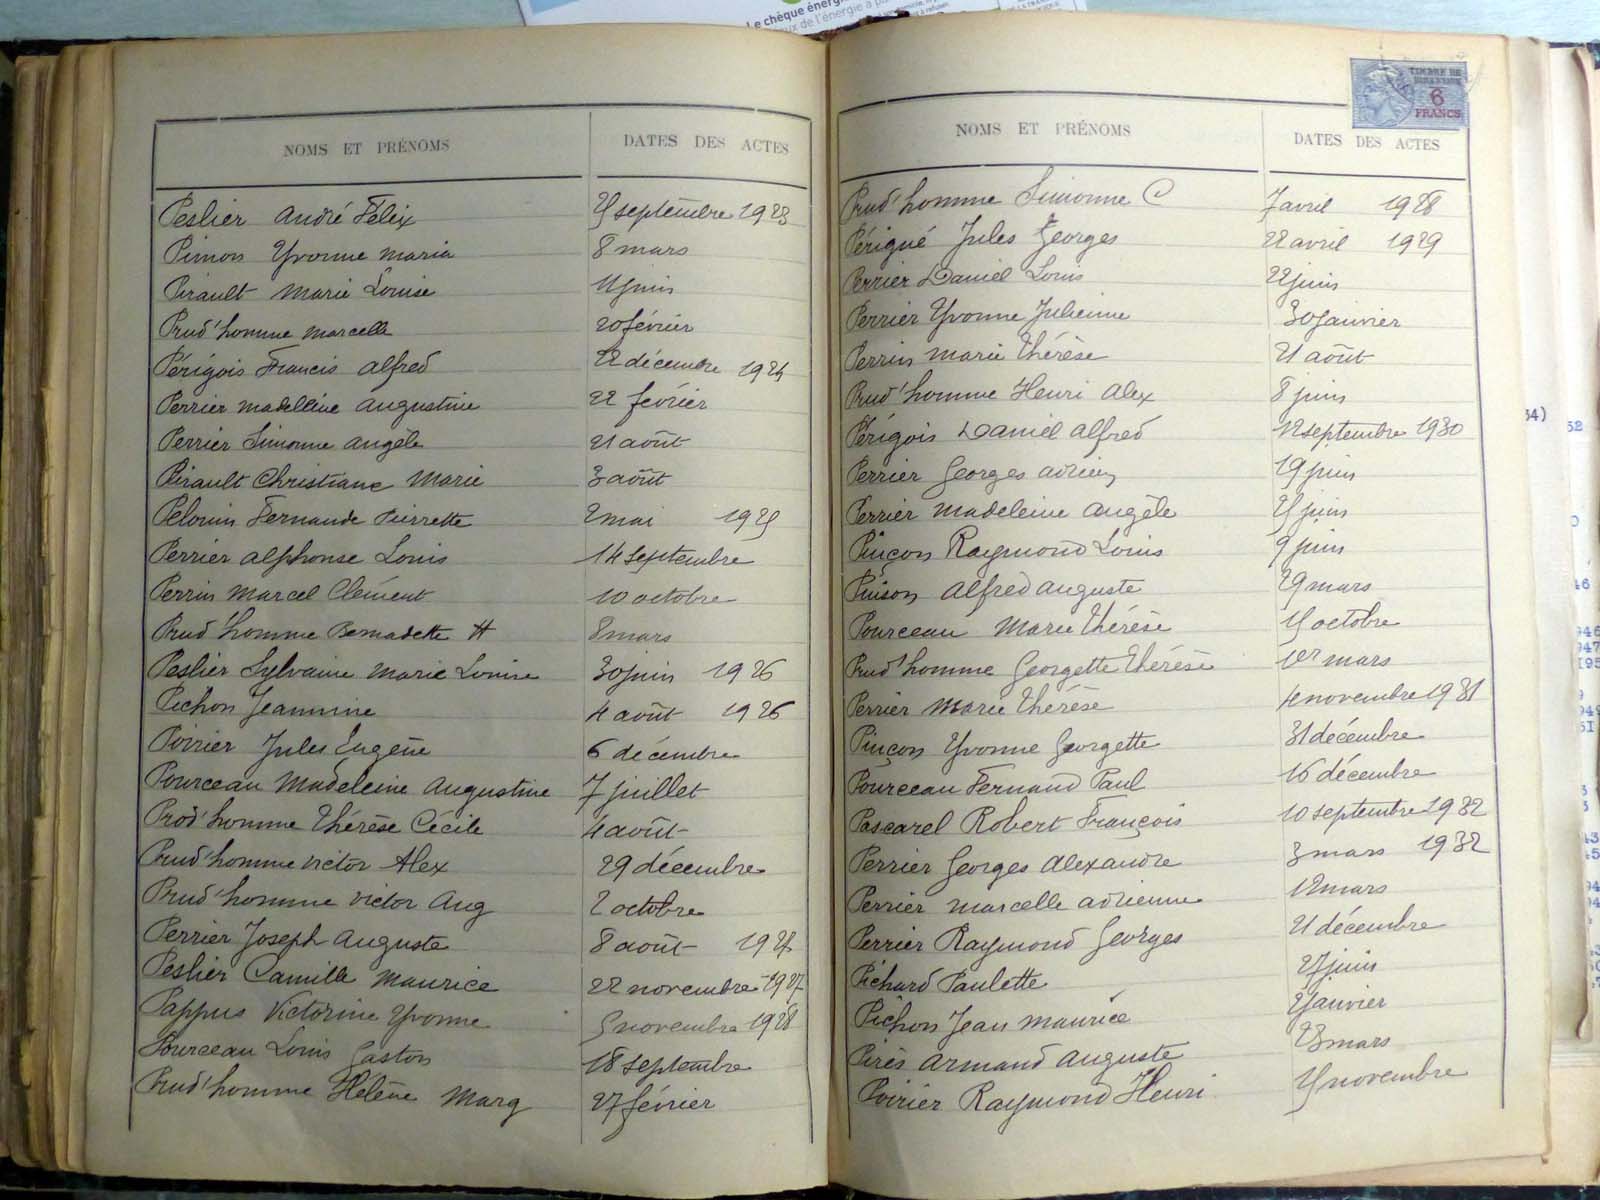 Le chèque énergie
NOMS ET PRÉNOMS DATES DES ACTES
Peslier André Félix 25 septembre 1923
Pimon Yvonne Maria 8 mars
Pirault Marie Louise juin
Prud'homme Marcelle 20 février
Périgois Francis Alfred 22 décembre 1924
Perrier Madeleine Augustine 22 février
Perrier Simonne Angèle 21 août
Pirault Christiane Marie 3 août
Pelouin Fernande Pierrette 2 mai 1925
Perrier Alphonse Louis 14 septembre
Perrin Marcel Clément 10 octobre
Prud'homme Bernadette H 8 mars
Peslier Sylvaine Marie Louise 30 juin 1926
Pichon Jeannine 4 août 1926
Poirier Jules Eugène 6 décembre
Pourceau Madeleine Augustine 7 juillet
Prod'homme Thérèse Cécile 4 août
Prud'homme Victor Alex 29 décembre
Prud'homme Victor Aug 2 octobre
Perrier Joseph Auguste 8 août 1927
Peslier Camille Maurice 22 novembre 1927
Pappus Victorine Yvonne 5 novembre 1928
Pourceau Louis Gaston 18 septembre
Prud'homme Hélène Marg 27 février
TIMBRE DE DIMENSION
6 FRANCS
NOMS ET PRÉNOMS DATES DES ACTES
Prud'homme Simonne C 7 avril 1928
Périgué Jules Georges 22 avril 1929
Perrier Daniel Louis 22 juin
Perrier Yvonne Julienne 30 janvier
Perrin Marie Thérèse 21 août
Prud'homme Henri Alex 8 juin
Périgois Daniel Alfred 12 septembre 1930
Perrier Georges Adrien 19 juin
Perrier Madeleine Angèle 25 juin
Pinçon Raymond Louis 9 juin
Pinson Alfred Auguste 29 mars
Pourceau Marie Thérèse 15 octobre
Prud'homme Georgette Thérèse 1er mars
Perrier Marie Thérèse 4 novembre 1931
Pinçon Yvonne Georgette 31 décembre
Pourceau Fernand Paul 16 décembre
Pascarel Robert François 10 septembre 1932
Perrier Georges Alexandre 3 mars 1932
Perrier Marcelle Adrienne 12 mars
Perrier Raymond Georges 21 décembre
Pichard Paulette 27 juin
Pichon Jean Maurice 2 janvier
Pirès Armand Auguste 23 mars
Poirier Raymond Henri 15 novembre